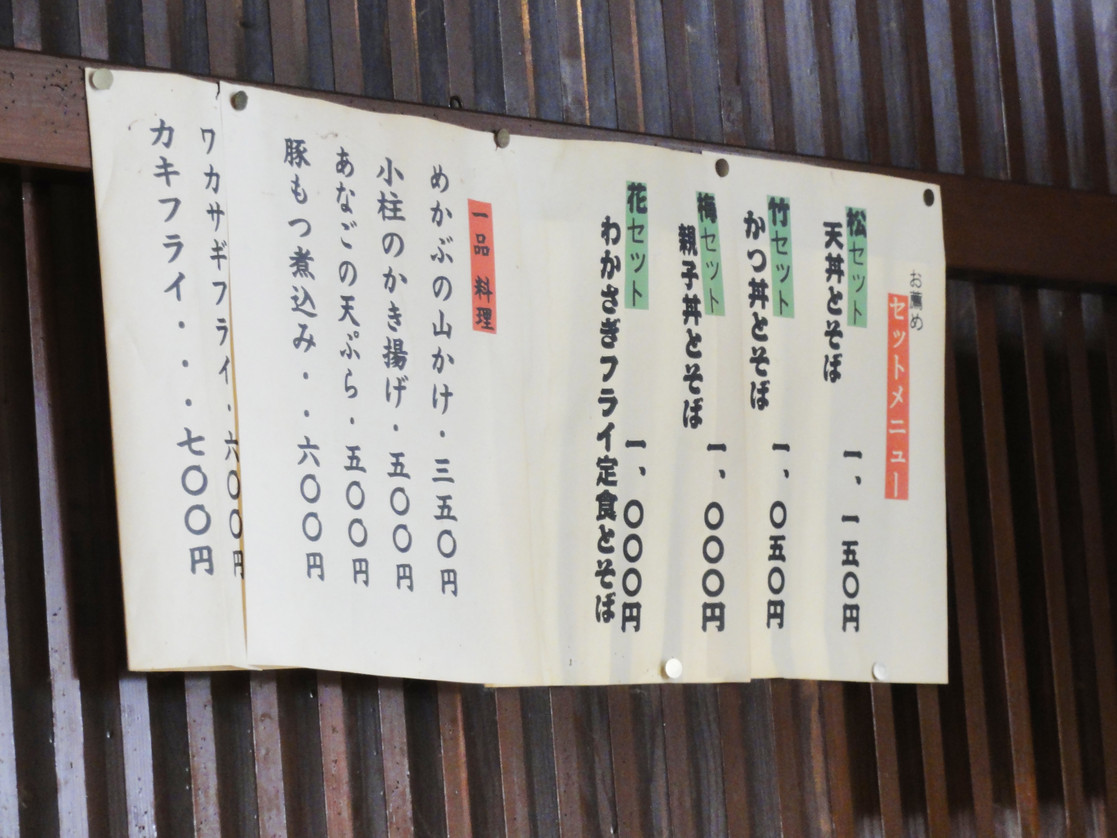 お薦め
セットメニュー
松セット
天丼とそば
一、一五〇円
竹セット
かつ丼とそば
一、〇五〇円
梅セット
親子丼とそば
一、〇〇〇円
花セット
わかさぎフライ定食とそば
一、〇〇〇円
一品 料理
めかぶの山かけ・三五〇円
小柱のかき揚げ・五〇〇円
あなごの天ぷら・五〇〇円
豚もつ煮込み・・六〇〇円
ワカサギフライ・六〇〇円
カキフライ・・・七〇〇円